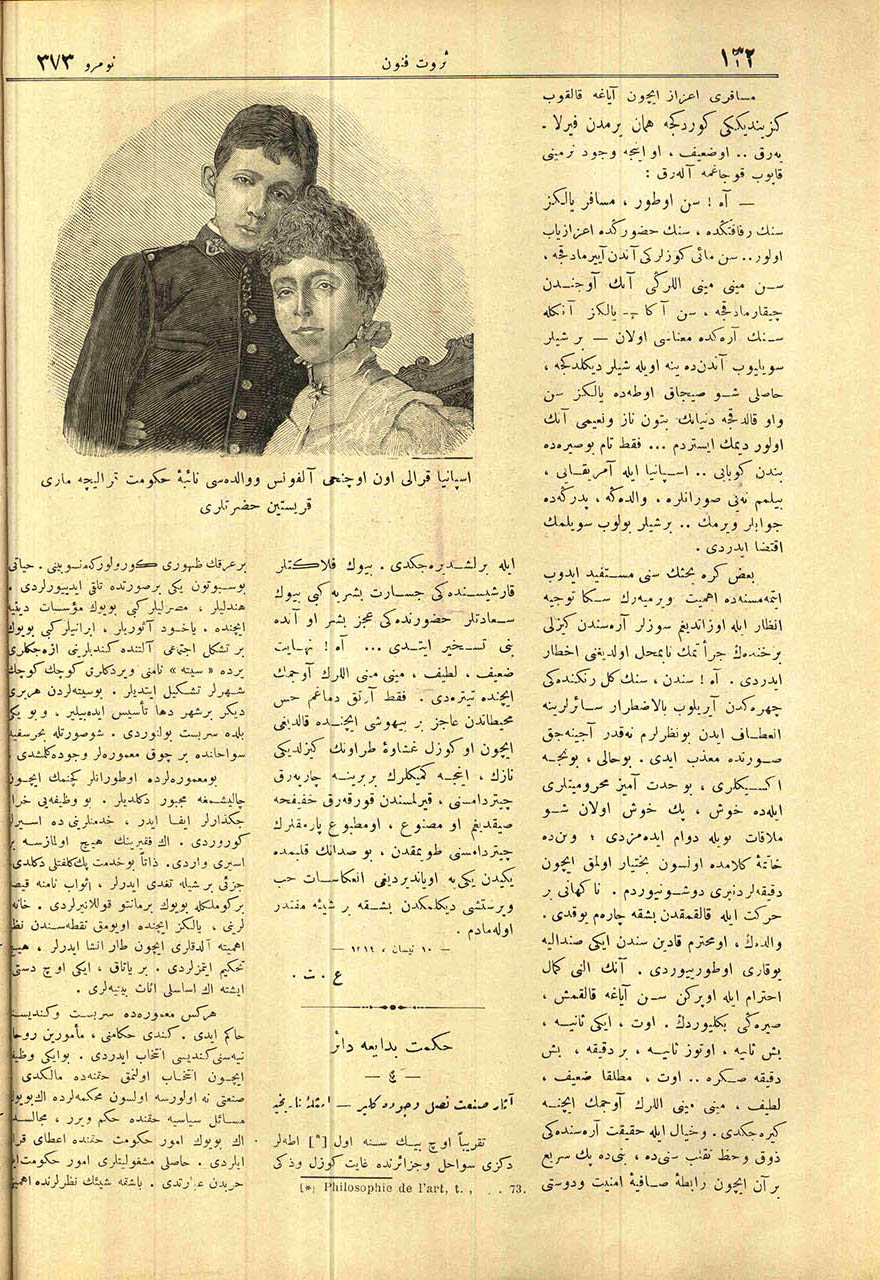 ١٣٢
ثروت فنون
نومرو ٣٧٣
مسافرى اعزاز ايچون آياغه قالقوب
كزينديككى كوردكجه همان يرمدن فيرلا ـ
يه‌رق .. اوضعيف ، او اينجه وجود نرمينى
قاپوب قوجاغمه آله‌رق :
— آه ! سن اوطور ، مسافر يالكز
سنك رفاقتكده ، سنك حضوركده اعزازياب
اولور.. سن مائى كوزلركى آندن آييرمادقجه ،
سن مينى مينى اللركى آنك آوجندن
چيقارمادقجه ، سن آكا — يالكز آنكله
سنك آره‌كده معناسى اولان — بر شيلر
سويليوب آندن‌ده ينه اويله شيلر ديكلدكجه ،
حاصلى شو صيجاق اوطه‌ده يالكز سن
واو قالدقجه دنيانك بتون ناز ونعيمى آنك
اولور ديمك ايستردم ... فقط تام بوصيره‌ده
بندن كوبايى .. اسپانيا ايله آمريقايى ،
بيلمم نه‌يى صورانلره ، والده‌كه ، پدركه‌ده
جوابلر ويرمك .. برشيلر بولوب سويلمك
اقتضا ايدردى .
بعض كره بحثك سنى مستفيد ايدوب
ايتمه‌مسنه‌ده اهميت ويرميه‌رك سكا توجيه
انظار ايله اوزانديغم سوزلر آره‌سندن كيزلى
برخنده‌ك جرأتمك نامحل اولديغنى اخطار
ايدردى . آه ! سندن ، سنك كل رنكنده‌كى
چهره‌كدن آيريلوب بالاضطرار سائرلرينه
انعطاف ايدن بونظرلرم نه‌قدر آجينه‌جق
صورتده معذب ايدى . بوحالى ، بونجه
اكسيكلرى ، بو حدت آميز محروميتلرى
ايله‌ده خوش ، پك خوش اولان شو
ملاقات بويله دوام ايده‌مزدى ؛ وبن‌ده
خاتمهٔ كلامده اونسون بختيار اولمق ايچون
دقيقه‌لردنبرى دوشونيوردم . ناكهانى بر
حركت ايله قالقمقدن بشقه چاره‌م يوقدى .
والده‌ك ، اومحترم قادين سندن ايكى صنداليه
يوقارى اوطوريوردى . آنك النى كمال
احترام ايله اوپركن سن آياغه قالقمش ،
صيره‌كى بكليوردك . اوت ، ايكى ثانيه ،
بش ثانيه ، اوتوز ثانيه ، بر دقيقه ، بش
دقيقه صكره .. اوت ، مطلقا ضعيف ،
لطيف ، مينى مينى اللرك آوجمك ايچنه
كيره‌جكدى . وخيال ايله حقيقت آره‌سنده‌كى
ذوق وحظ تقلب سنى‌ده ، بنى‌ده پك سريع
برآن ايچون رابطهٔ صافيهٔ امنيت ودوستى
اسپانيا قرالى اون اوچنجى آلفونس ووالده‌سى نائبهٔ حكومت قراليچه مارى
قريستين حضرتلرى
ايله برلشديره‌جكدى . بيوك فلاكتلر
قارشيسنده‌كى جسارت بشريه كبى بيوك
سعادتلر حضورنده‌كى عجز بشر او آنده
بنى تسخير ايتدى ... آه ! نهايت
ضعيف ، لطيف ، مينى مينى اللرك آوجمك
ايچنده تيتره‌دى . فقط آرتق دماغم حس
محيطاتدن عاجز بر بيهوشى ايچنده قالديغى
ايچون اوكوزل غشاوهٔ طراوتك كيزلديكى
نازك ، اينجه كميكلرك بربرينه چارپه‌رق
چيتردامسنى ، قيرلمسندن قورقه‌رق خفيفجه
صيقديغم او مصنوع ، اومطبوع پارمقلرك
چيتردامسنى طويمقدن ، بو صدانك قلبمده
يكيدن يكى‌يه اوياندیرديغى انعكاسات حب
وپرستشى ديكلمكدن بشقه بر شيئه مقتدر
اوله‌مادم .
— ١٠ نيسان ، ١٣١٤ —
ع . ت .
حكمت بدايعه دائر
— ٤ —
آثار صنعت نصل وجوده كلير — اسك تاريخيه
تقريباً اوچ بيك سنه اول [*] اطه‌لر
دكزى سواحل وجزائرنده غايت كوزل وذكى
[*] Philosophie de l'art, t., . . 73.
برعرقك ظهورى كورولوركه‌منوينى . حياتى
بوسبوتون يكى برصورتده تلقى ايدييورلردى .
هنديلر ، مصرليلر كبى بويوك مؤسسات دينيه
ايچنده . ياخود آثوريلر ، ايرانيلر كبى بويوك
بر تشكل اجتماعى آلتنده كنديلرينى ازه‌جكلرى
يرده « سيته » نامنى ويردكلرى كوچك كوچك
شهرلر تشكيل ايتديلر . بوسيته‌لردن هربرى
ديكر برشهر دها تأسيس ايده‌بيلير ، وبو يكى
بلده سربست بولنوردى . شوصورتله بحرسفيد
سواحلنده بر چوق معموره‌لر وجوده‌كلشدى .
بومعموره‌لرده اوطورانلر كچنمك ايچون
چاليشمغه مجبور دكلديلر . بو وظيفه‌يى خرا
جكذارلر ايفا ايدر ، خدمتلرينى ده اسيرلر
كوروردى . اك فقيرينك هيچ اولمازسه بر
اسيرى واردى . ذاتاً بوخدمت پك‌كلفتلى دكلدى.
جزئى بر شيله تغدى ايدرلر ، اثواب نامنه قيصه
بركوملكله بويوك برمانتو قوللانيرلردى . خانه
لرينى ، يالكز ايچنده اويومق نقطه‌سندن نظر
اهميته آلدقلرى ايچون طار انشا ايدرلر ، هيچ
تحكيم ايتمزلردى . بر ياتاق ، ايكى اوچ دستى
ايشته اك اساسلى اثاث بيتيه‌لرى .
هركس معموره‌ده سربست وكندیسنه
حاكم ايدى . كندى حكامنى ، مأمورين روحا
نيه‌سنى كنديسى انتخاب ايدردى . بوايكى وظيفه
ايچون انتخاب اولنمق حقنه‌ده مالكدى .
صنعتى نه اولورسه اولسون محكمه‌لرده اك‌بويوك
مسائل سياسيه حقنده حكم ويرر ، مجالسده
اك بويوك امور حكومت حقنده اعطاى قرار
ايلردى . حاصلى مشغوليتلرى امور حكومت‌ايله
حربدن عبارتدى . باشقه شيئك نظرلرنده اهميتى